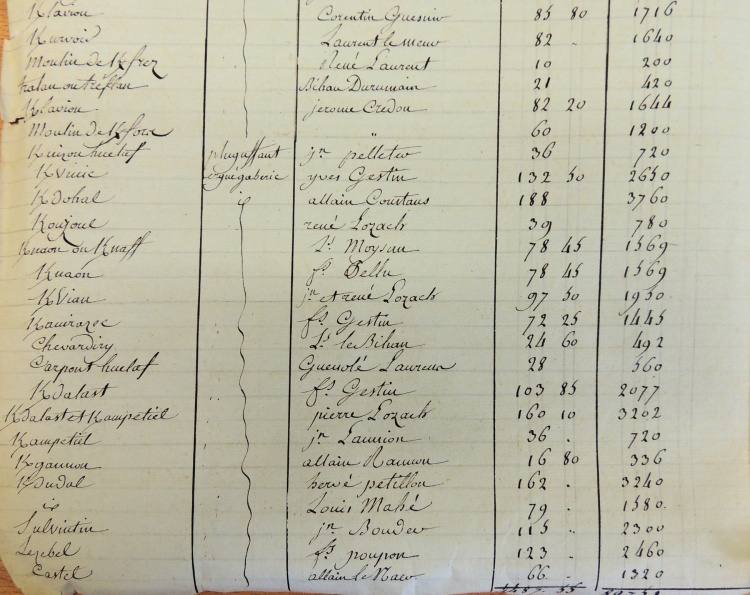 Klaviou Corentin Guesnu 85 80 1716
Kervoi Laurent le meur 82 . 1640
Moulin de Kfrez René Laurent 10 200
tralan ou treflan Bihan Dureumain 21 420
Klaviou jerome Credou 82 20 1644
Moulin de Kfore " 60 1200
pluguffant jn pelleter 36 720
Kvinic erguégaberic yves Gestin 132 50 2650
Kdohal id allain Courtaus 188 3760
Koujoul rené Lozach 39 780
Knaon ou Knaff Ls Moysan 78 45 1569
Knaon fs Tellu 78 45 1569
KVian jn et rené Lozach 97 50 1950
Kauirazec fs Gestin 72 25 1445
Chevardiry Ls le Bihan 24 60 492
Carpont huelaf Guenolé Laurent 28 560
Kdalast fs Gestin 103 85 2077
Kdalast et Kampetiel pierre Lozach 160 10 3202
Kampetiel jn Lannion 36 . 720
Kgannou allain Rannou 16 80 336
Kdudal hervé petillon 162 . 3240
id Louis Mahé 79 . 1580.
Sulvintin jn Bouder 115 . 2300
Lezebel fs poupon 123 . 2460
Castel allain le Naer 66 . 1320